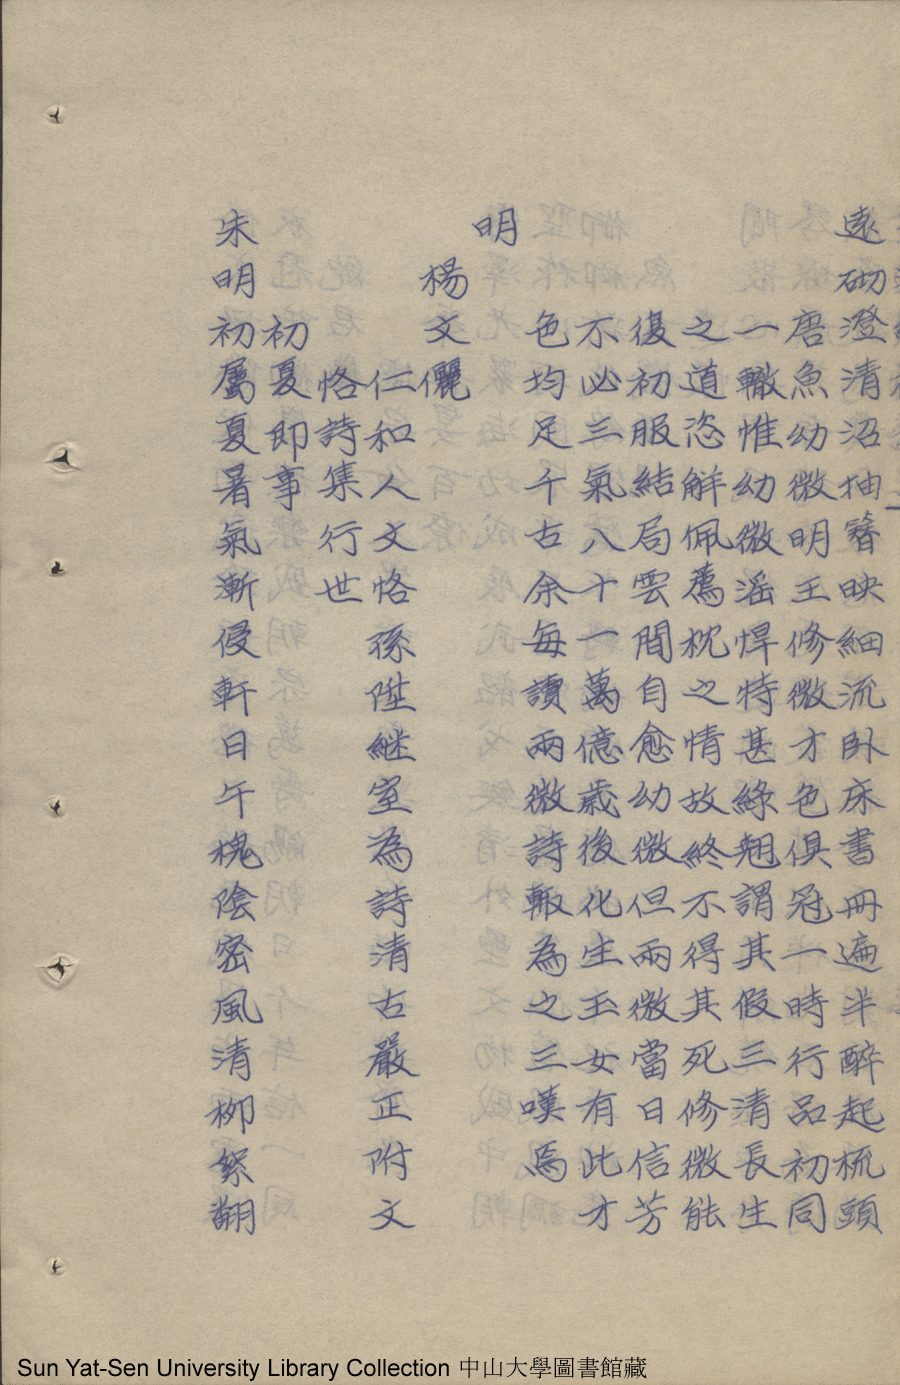 遶砌澄清沼抽簪映細流卧床書冊遍半醉起梳頭
唐魚幼微明王修微才色俱冠一時行品初同
一轍惟幼微滛悍特甚綠翹謂其假三清長生
之道恣解佩薦枕之情故終不得其死修微能
復初服結局雲間自愈幼微但兩微當日信芳
不必三氣八十一萬億歲後化生玉女有此才
色均足千古余每讀兩微詩輙為之三嘆焉
明
楊文儷
仁和人文恪孫陞継室為詩清古嚴正附文
恪詩集行世
初夏即事
朱明初屬夏暑氣漸侵軒日午槐陰密風清柳絮翻
Sun Yat-Sen University Library Collection 中山大學圖書館藏